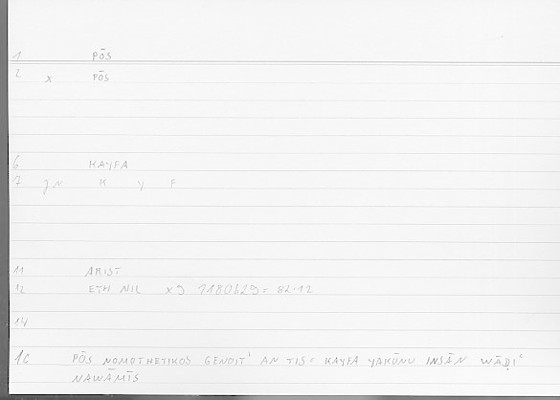 1 PŌS
2 x PŌS
6 KAYFA
7 JN K Y F
11 ARIST
12 ETH NIC x 9 1180b29 = 82-12
14
16 PŌS NOMOTHETIKOS GENOIT' AN TIS: KAYFA YAKŪNU INSĀN WĀḌI'
NAWĀMĪS